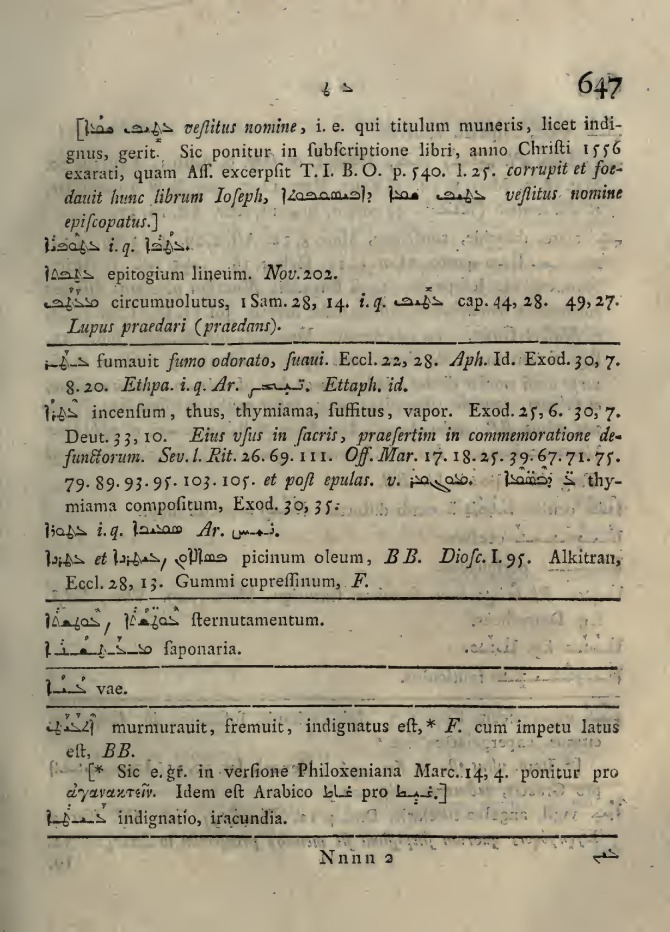 ܥ ܛ 647
vestitus nomine, i. e. qui titulum muneris, licet indi-
gnus, gerit. Sic ponitur in subscriptione libri, anno Christi 1556
exarati, quam Ass. excerpsit T. I. B. O. p. 540. l. 25. corrupit et foe-
dauit hunc librum Ioseph, vestitus nomine
episcopatus.]
i. q.
epitogium lineum. Nov. 202.
circumuolutus, 1 Sam. 28, 14. i. q. ܥܛܝܦ cap. 44, 28. 49, 27.
Lupus praedari (praedans).
ܥܛܪ fumauit fumo odorato, suaui. Eccl. 22, 28. Aph. Id. Exod. 30, 7.
8. 20. Ethpa. i. q. Ar. Ettaph. id.
ܥܛܪܐ incensum, thus, thymiama, suffitus, vapor. Exod. 25, 6. 30, 7.
Deut. 33, 10. Eius vsus in sacris, praesertim in commemoratione de-
functorum. Sev. l. Rit. 26. 69. 111. Off. Mar. 17. 18. 25. 39. 67. 71. 75.
79. 89. 93. 95. 103. 105. et post epulas. v. thy-
miama compositum, Exod. 30, 35.
ܥܛܘܪܐ i. q. Ar.
ܥܛܪܢܐ et picinum oleum, B B. Diosc. I. 95. Alkitran,
Eccl. 28, 13. Gummi cupressinum, F.
sternutamentum.
saponaria.
vae.
murmurauit, fremuit, indignatus est, * F. cum impetu latus
est, BB.
[* Sic e. gr. in versione Philoxeniana Marc. 14, 4. ponitur pro
ἀγανακτεῖν. Idem est Arabico غاظ pro غيظ.]
indignatio, iracundia.
Nnnn 2